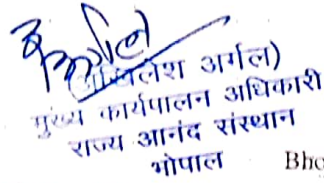 लेश अर्गल)
मुख्य कार्यपालन अधिकारी
राज्य आनंद संस्थान
भोपाल Bho